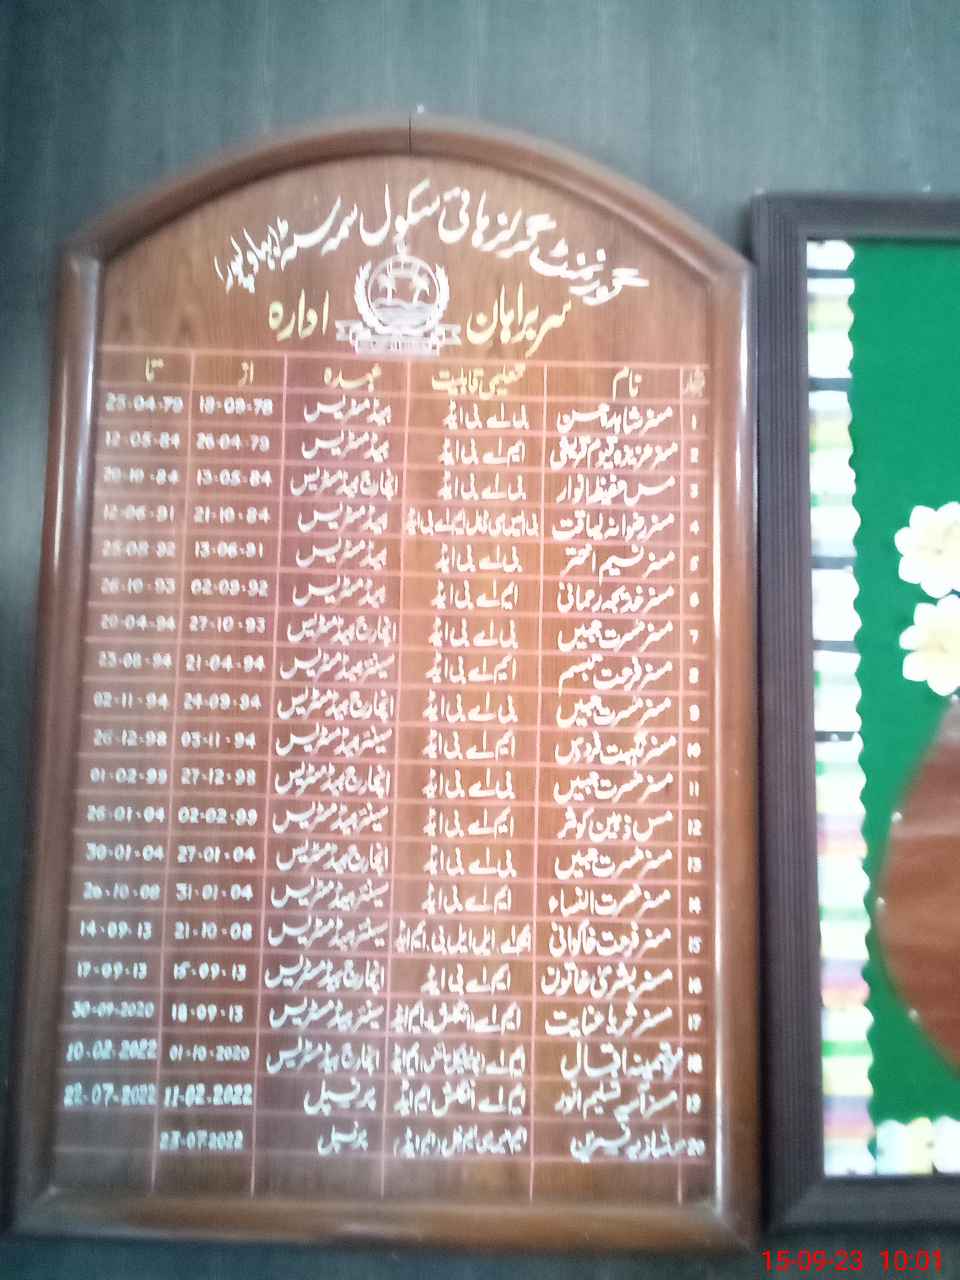 گورنمنٹ گرلز ہائی سکول سمہ سٹہ (بہاولپور)
سربراہان ادارہ
نام تعلیمی قابلیت عہدہ از تا
1 مسز شاہدہ محسن بی اے بی ایڈ ہیڈ مسٹریس 25-04-79
2 ایم اے بی ایڈ ہیڈ مسٹریس 26-04-79 12-05-84
3 مس حفیظ انوار بی اے بی ایڈ انچارج ہیڈ مسٹریس 13-05-84 20-10-84
4 مسز رضوانہ لیاقت ہیڈ مسٹریس 21-10-84 12-06-91
5 مسز نسیم اختر بی اے بی ایڈ ہیڈ مسٹریس 13-06-91 25-08-92
6 مسز خدیجہ رحمانی ایم اے بی ایڈ ہیڈ مسٹریس 02-09-92 26-10-93
7 مسز مسرت جبیں بی اے بی ایڈ انچارج ہیڈ مسٹریس 27-10-93 20-04-94
8 مسز فرحت تبسم ایم اے بی ایڈ سینئر ہیڈ مسٹریس 21-04-94 23-08-94
9 مسز مسرت جبیں بی اے بی ایڈ انچارج ہیڈ مسٹریس 24-09-94 02-11-94
10 مسز نگہت فردوس ایم اے بی ایڈ سینئر ہیڈ مسٹریس 03-11-94 26-12-98
11 مسز مسرت جبیں بی اے بی ایڈ انچارج ہیڈ مسٹریس 27-12-98 01-02-99
12 مس ذہین کوثر ایم اے بی ایڈ سینئر ہیڈ مسٹریس 02-02-99 26-01-04
13 مسز مسرت جبیں بی اے بی ایڈ انچارج ہیڈ مسٹریس 27-01-04 30-01-04
14 مسز عشرت النساء ایم اے بی ایڈ سینئر ہیڈ مسٹریس 31-01-04 26-10-08
15 مسز فرحت خاکوانی ایم اے ایل ایل بی، ایم ایڈ سینئر ہیڈ مسٹریس 21-10-08 14-09-13
16 مسز بشریٰ خاتون ایم اے بی ایڈ انچارج ہیڈ مسٹریس 15-09-13 17-09-13
17 مسز ثریا عنایت ایم اے انگلش، ایم ایڈ سینئر ہیڈ مسٹریس 18-09-13 30-09-2020
18 تہمینہ اقبال ایم اے ایم ایڈ انچارج ہیڈ مسٹریس 01-10-2020 10-02-2022
19 مسز آسیہ تسلیم انور ایم اے انگلش ایم ایڈ پرنسپل 11-02-2022 22-07-2022
20 شازیہ نسرین ایم ایڈ پرنسپل 23-07-2022
15-09-23 10:01